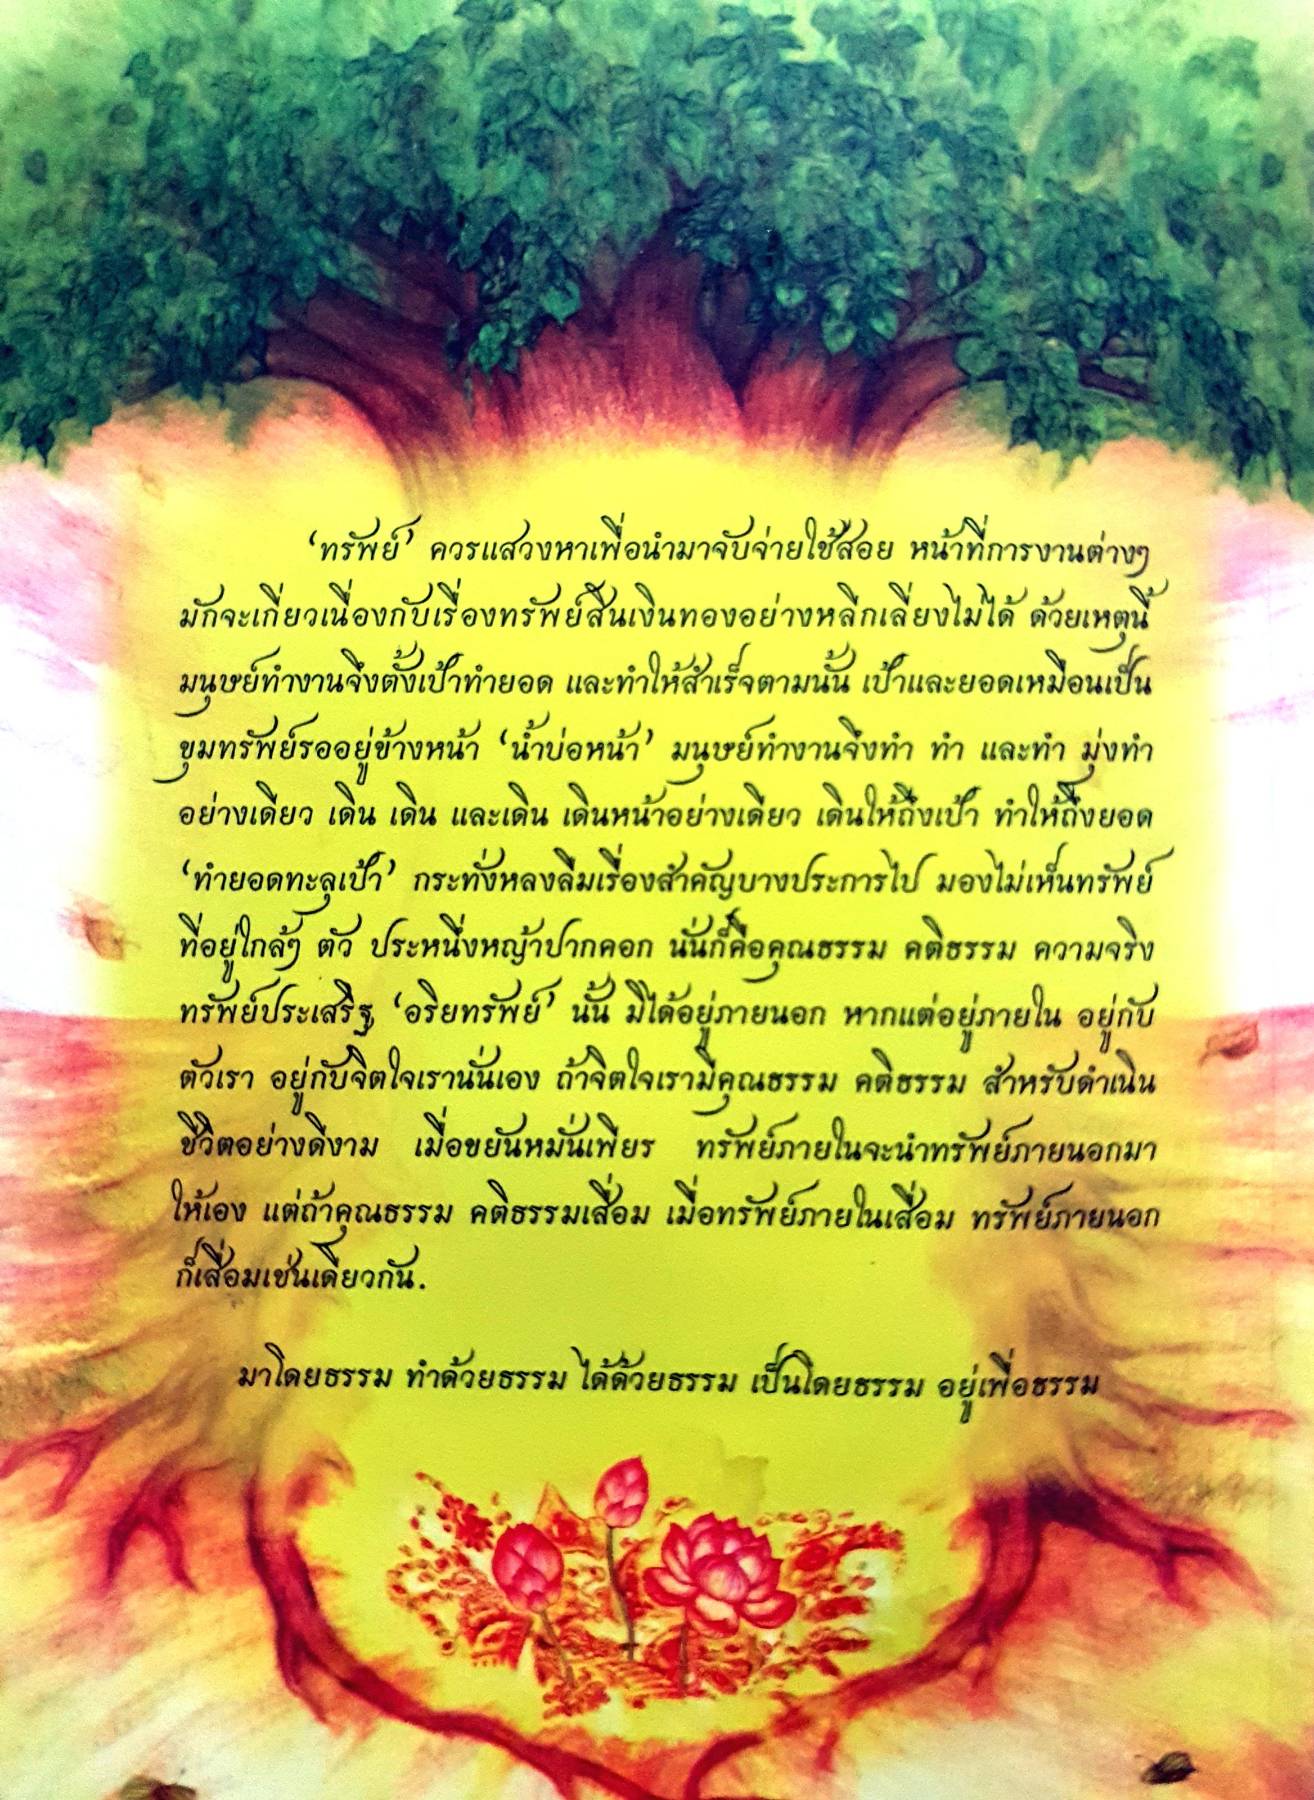 ‘ทรัพย์’ ควรแสวงหาเพื่อนำมาจับจ่ายใช้สอย หน้าที่การงานต่างๆ
มักจะเกี่ยวเนื่องกับเรื่องทรัพย์สินเงินทองอย่างหลีกเลี่ยงไม่ได้ ด้วยเหตุนี้
มนุษย์ทำงานจึงตั้งเป้าทำยอด และทำให้สำเร็จตามนั้น เป้าและยอดเหมือนเป็น
ขุมทรัพย์รออยู่ข้างหน้า ‘น้ำบ่อหน้า’ มนุษย์ทำงานจึงทำ ทำ และทำ มุ่งทำ
อย่างเดียว เดิน เดิน และเดิน เดินหน้าอย่างเดียว เดินให้ถึงเป้า ทำให้ถึงยอด
‘ทำยอดทะลุเป้า’ กระทั่งหลงลืมเรื่องสำคัญบางประการไป มองไม่เห็นทรัพย์
ที่อยู่ใกล้ๆ ตัว ประหนึ่งหญ้าปากคอก นั่นก็คือคุณธรรม คติธรรม ความจริง
ทรัพย์ประเสริฐ ‘อริยทรัพย์’ นั้น มิได้อยู่ภายนอก หากแต่อยู่ภายใน อยู่กับ
ตัวเรา อยู่กับจิตใจเรานั่นเอง ถ้าจิตใจเรามีคุณธรรม คติธรรม สำหรับดำเนิน
ชีวิตอย่างดีงาม เมื่อขยันหมั่นเพียร ทรัพย์ภายในจะนำทรัพย์ภายนอกมา
ให้เอง แต่ถ้าคุณธรรม คติธรรมเสื่อม เมื่อทรัพย์ภายในเสื่อม ทรัพย์ภายนอก
ก็เสื่อมเช่นเดียวกัน.
มาโดยธรรม ทำด้วยธรรม ได้ด้วยธรรม เป็นโดยธรรม อยู่เพื่อธรรม